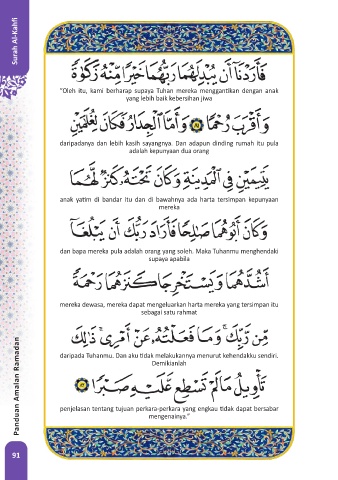 Surah Al-Kahfi
فَأَرَدْنَآ أَن يُبْدِلَهُمَا رَبُّهُمَا خَيْرًا مِّنْهُ زَكَوٰةً
“Oleh itu, kami berharap supaya Tuhan mereka menggantikan dengan anak
yang lebih baik kebersihan jiwa
وَأَقْرَبَ رُحْمًا ۝٨١ وَأَمَّا ٱلْجِدَارُ فَكَانَ لِغُلَٰمَيْنِ
daripadanya dan lebih kasih sayangnya. Dan adapun dinding rumah itu pula
adalah kepunyaan dua orang
يَتِيمَيْنِ فِى ٱلْمَدِينَةِ وَكَانَ تَحْتَهُۥ كَنزٌ لَّهُمَا
anak yatim di bandar itu dan di bawahnya ada harta tersimpan kepunyaan
mereka
وَكَانَ أَبُوهُمَا صَٰلِحًا فَأَرَادَ رَبُّكَ أَن يَبْلُغَآ
dan bapa mereka pula adalah orang yang soleh. Maka Tuhanmu menghendaki
supaya apabila
أَشُدَّهُمَا وَيَسْتَخْرِجَا كَنزَهُمَا رَحْمَةً
mereka dewasa, mereka dapat mengeluarkan harta mereka yang tersimpan itu
sebagai satu rahmat
مِّن رَّبِّكَ ۚ وَمَا فَعَلْتُهُۥ عَنْ أَمْرِى ۚ ذَٰلِكَ
daripada Tuhanmu. Dan aku tidak melakukannya menurut kehendakku sendiri.
Demikianlah
تَأْوِيلُ مَا لَمْ تَسْطِع عَّلَيْهِ صَبْرًا ۝٨٢
penjelasan tentang tujuan perkara-perkara yang engkau tidak dapat bersabar
mengenainya.”
Panduan Amalan Ramadan
91